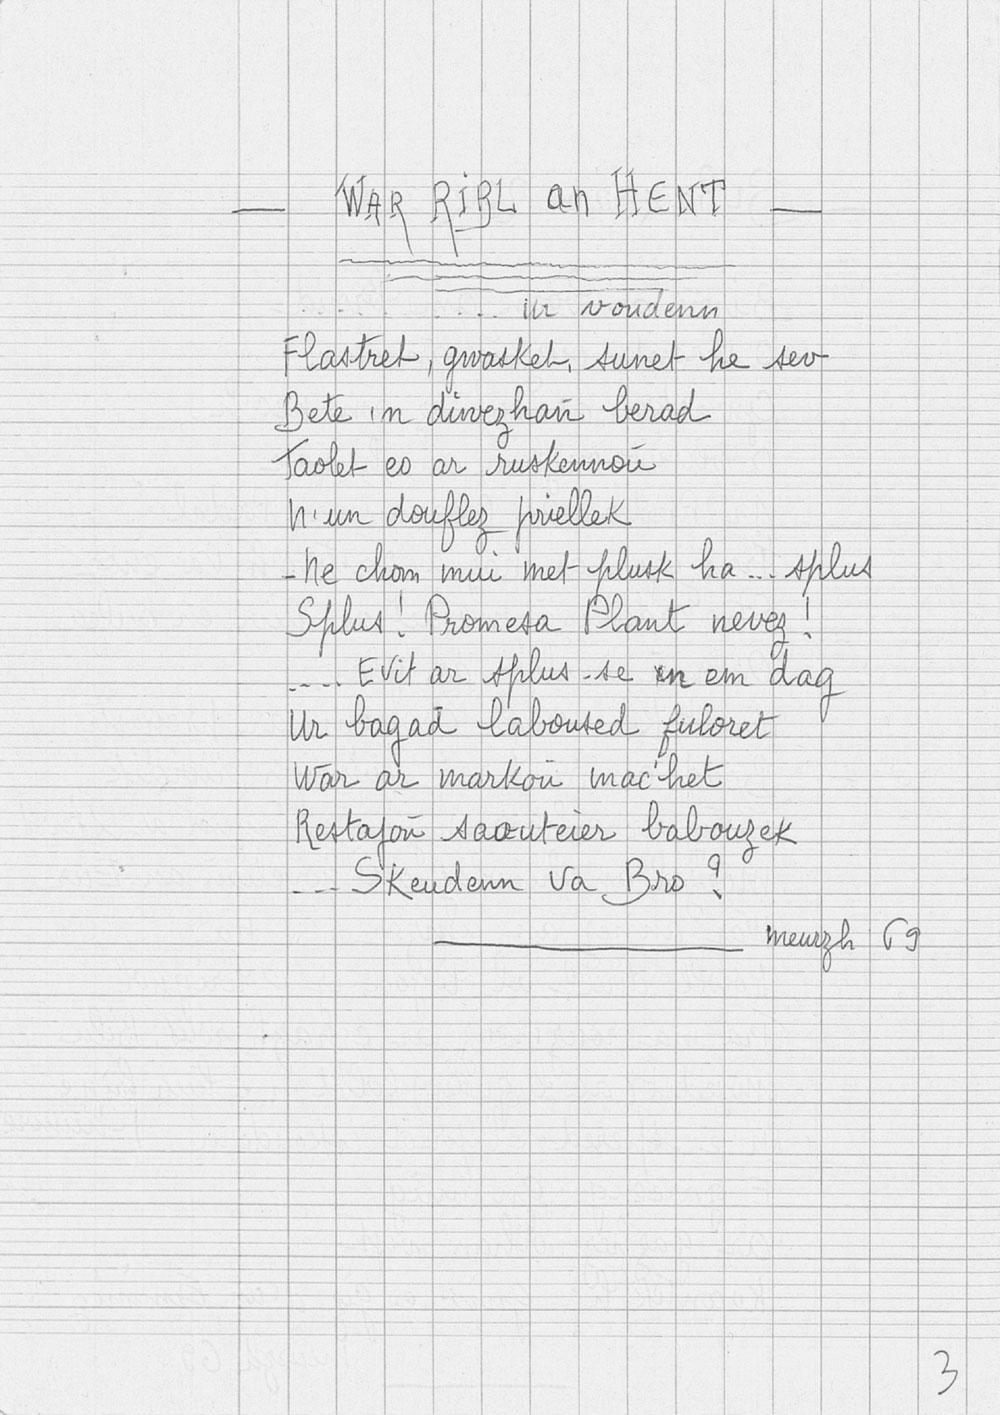 — WAR RIBL an HENT —
........ ur voudenn
Flastret, gwasket, sunet he sev
Bete un divezhañ berad
Taolet eo ar ruskennoù
N'un douflez priellek
- Ne chom mui met plusk ha... splus
Splus! Promesa Plant nevez!
.... Evit ar splus-se en em dag
Ur bagad laboused fuloret
War ar markoù mac'het
Restajoù saouteier babouzek
.... Skeudenn va Bro ?
meurzh 69
3